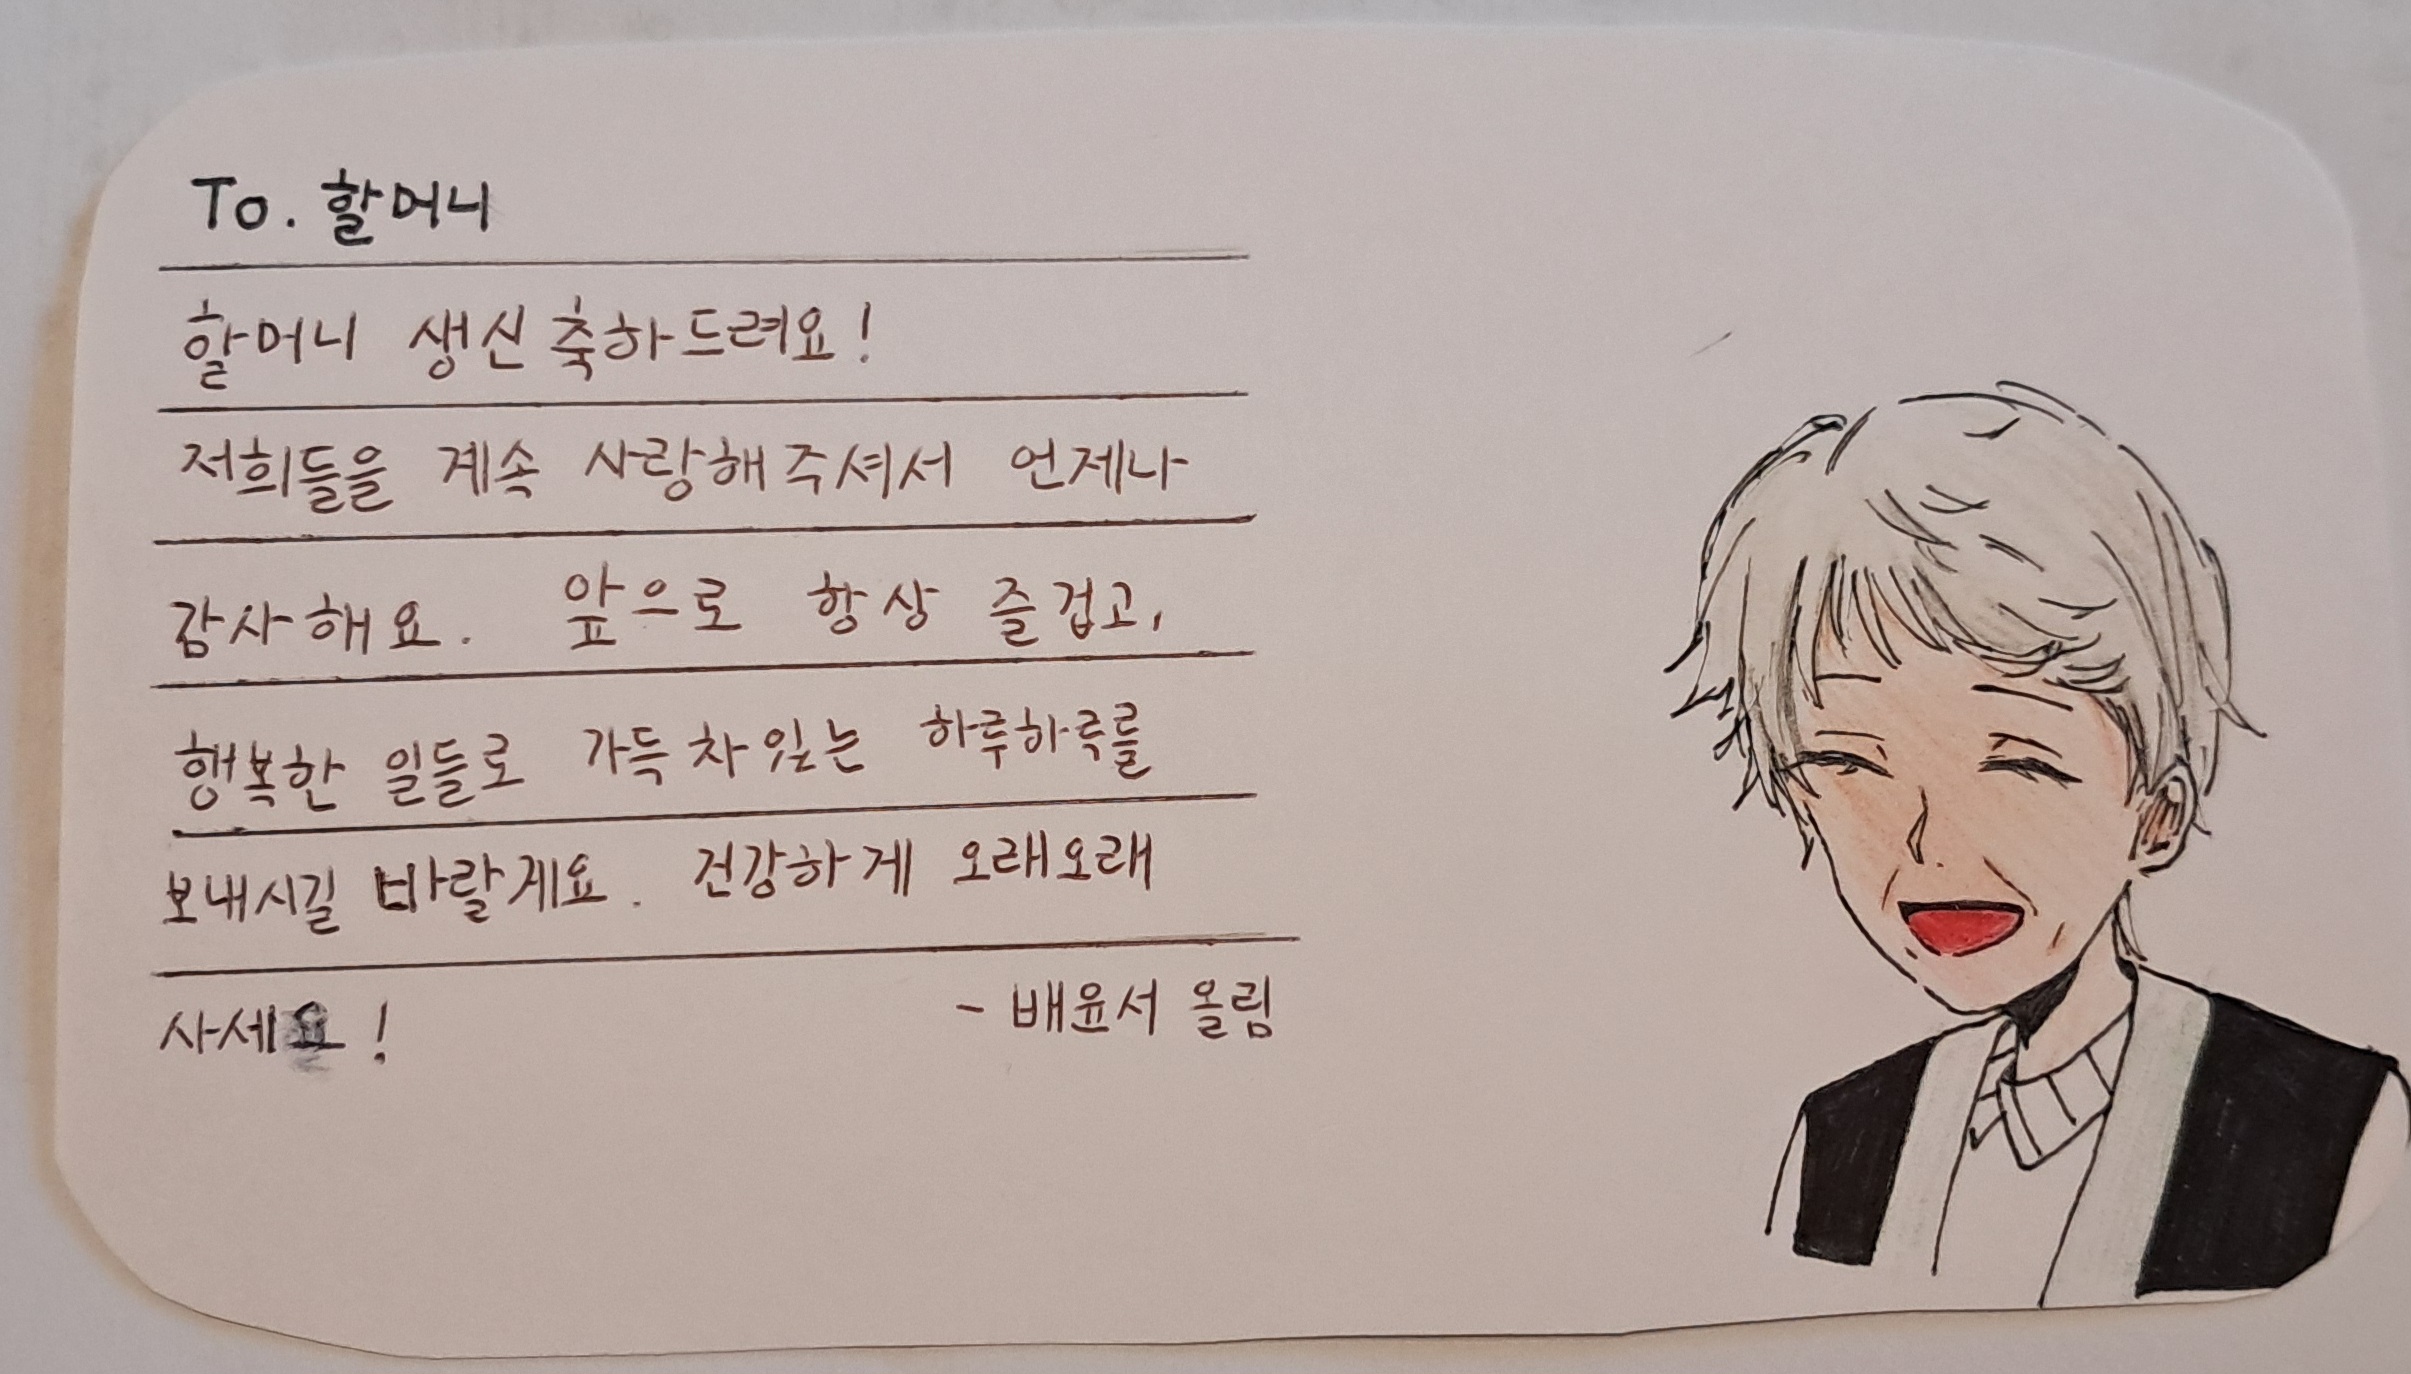 To. 할머니
할머니 생신 축하드려요!
저희들을 계속 사랑해주셔서 언제나
감사해요. 앞으로 항상 즐겁고,
행복한 일들로 가득 차있는 하루하루를
보내시길 바랄게요. 건강하게 오래오래
사세요!
- 배윤서 올림